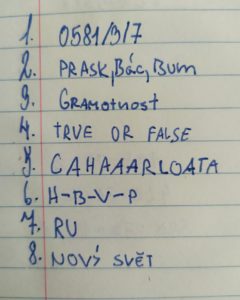 1. 0581/3/7
2. PRASK, Bác, Bum
3. Gramotnost
4. TRVE OR FALSE
5. CAHAAARLOATA
6. H-B-V-P
7. RU
8. NOVÝ SVĚT